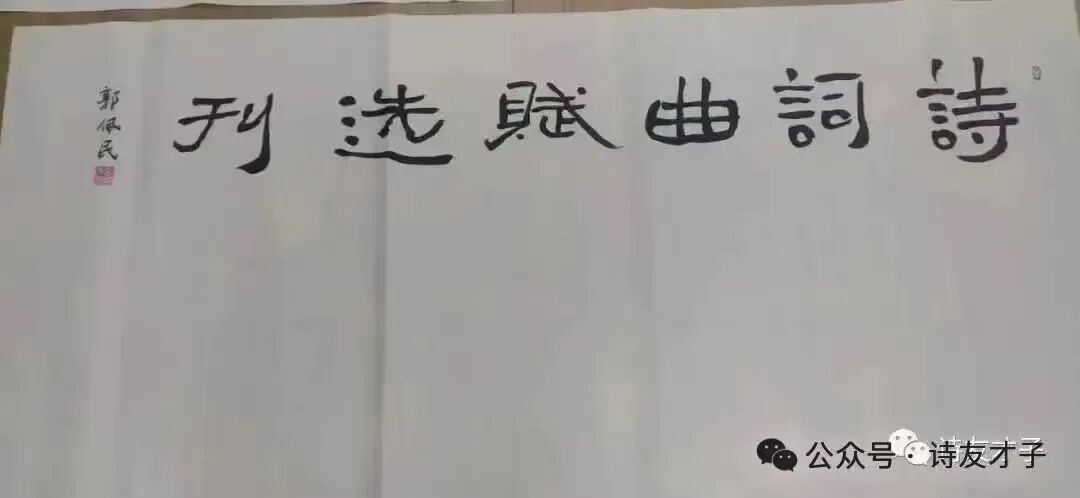 詩詞曲賦选刊
郭佩民
公众号·诗友才子
诗友才子